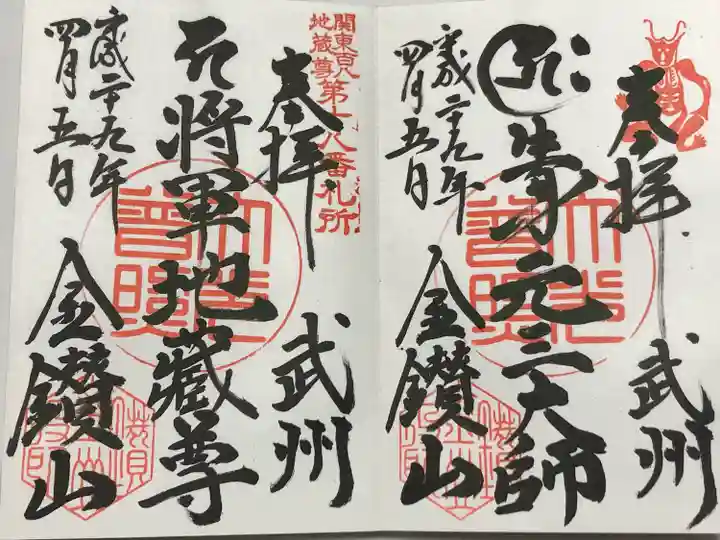 奉拝
武州
元三大師
平成二十九年
四月五日
金鑚山
関東百八
地蔵尊第七八番札所
奉拝
武州
将軍地蔵尊
平成二十九年
四月五日
金鑚山